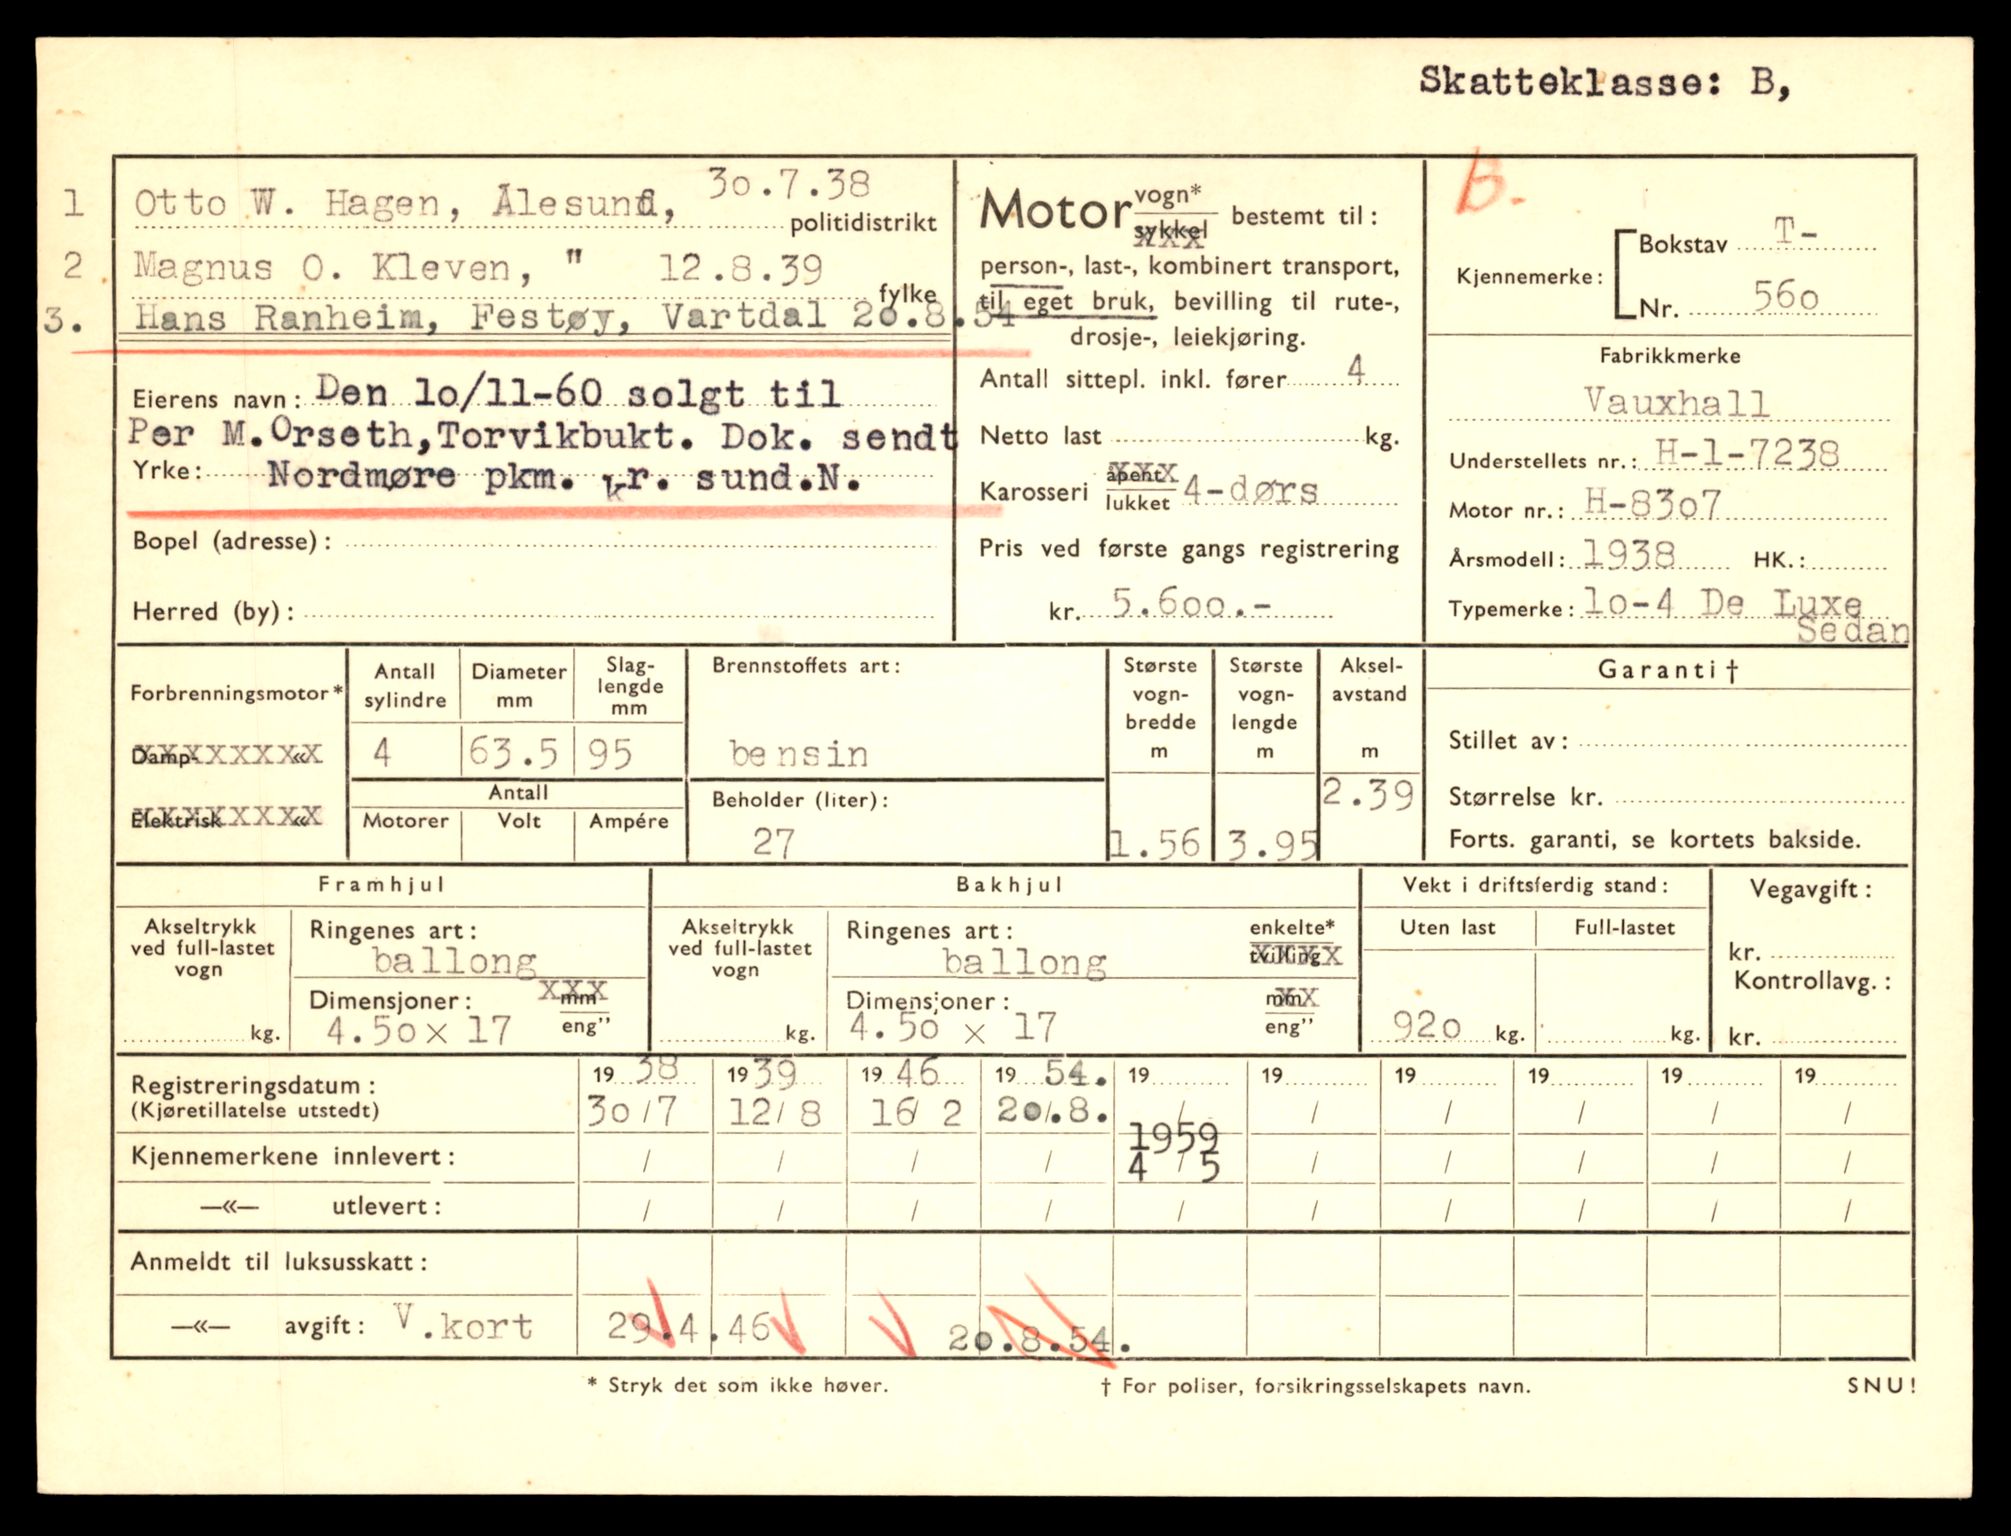 Skatteklasse: B,
1 Otto W. Hagen, Ålesund, 30.7.38
politidistrikt
2 Magnus O. Kleven, " 12.8.39
fylke
3. Hans Ranheim, Festøy, Vartdal 20.8.54
Eierens navn: Den 10/11-60 solgt til
Per M.Orseth, Torvikbukt. Dok. sendt
Yrke: Nordmøre pkm. kr. sund.N.
Bopel (adresse):
Herred (by):
Motor vogn* sykkel bestemt til:
person-, last-, kombinert transport,
til eget bruk, bevilling til rute-,
drosje-, leiekjøring.
Antall sittepl. inkl. fører 4
Netto last kg.
Karosseri åpent XXX
lukket 4-dørs
Pris ved første gangs registrering
kr. 5.600.-
B.
Kjennemerke: Bokstav T-
Nr. 560
Fabrikkmerke
Vauxhall
Understellets nr.: H-1-7238
Motor nr.: H-8307
Årsmodell: 1938 HK.:
Typemerke: 10-4 De Luxe
Sedan
Forbrenningsmotor*
Damp- XXXXXXXX «
Elektrisk XXXXXXXX «
Antall sylindre Diameter mm Slag-lengde mm
4 63.5 95
Antall
Motorer Volt Ampére
Brennstoffets art:
bensin
Beholder (liter):
27
Største vogn-bredde m
1.56
Største vogn-lengde m
3.95
Aksel-avstand m
2.39
Garanti †
Stillet av:
Størrelse kr.
Forts. garanti, se kortets bakside.
Framhjul
Akseltrykk ved full-lastet vogn
kg.
Ringenes art:
ballong
Dimensjoner: XXX mm
4.50 x 17 eng”
Bakhjul
Akseltrykk ved full-lastet vogn
kg.
Ringenes art: enkelte*
ballong tvilling XXXX
Dimensjoner: mm XX
4.50 x 17 eng”
Vekt i driftsferdig stand:
Uten last Full-lastet
920 kg. kg.
Vegavgift:
kr.
Kontrollavg.:
kr.
Registreringsdatum: 19 38 19 39 19 46 19 54. 19 19 19 19 19 19
(Kjøretillatelse utstedt) 30/7 12/8 16/2 20/.8. / / / / / /
1959
Kjennemerkene innlevert: / / / / 4/5 / / / / /
—«— utlevert: / / / / / / / / / /
Anmeldt til luksusskatt:
—«— avgift: V.kort 29.4.46 20.8.54.
* Stryk det som ikke høver.
† For poliser, forsikringsselskapets navn.
SNU!